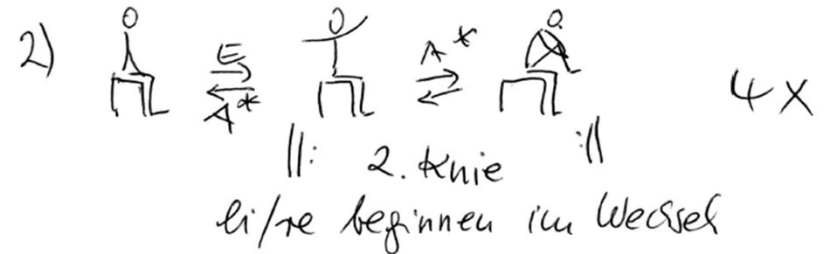 2) E A* A* 4x
||: 2. Knie :||
li/re beginnen im Wechsel